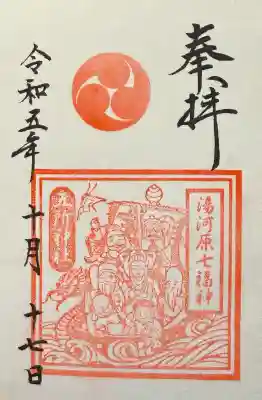 奉拝
湯河原七福神
令和五年 十月 十七日